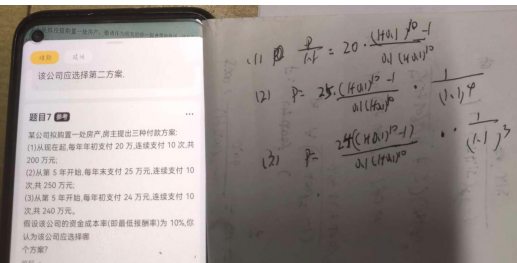 该公司应选择第二方案.
题目7 参考
某公司拟购置一处房产,房主提出三种付款方案:
(1)从现在起,每年年初支付 20 万,连续支付 10 次,共
200 万元;
(2)从第 5 年开始,每年末支付 25 万元,连续支付 10
次,共 250 万元;
(3)从第 5 年开始,每年初支付 24 万元,连续支付 10
次,共 240 万元。
假设该公司的资金成本率(即最低报酬率)为 10%,你
认为该公司应选择哪
个方案?
(1) P/1.1 = 20 · (1+0.1)^10 - 1 / 0.1 (1+0.1)^10
(2) P = 25 · (1+0.1)^10 - 1 / 0.1(1+0.1)^10 · 1 / (1.1)^4
(3) P = 24((1+0.1)^10 - 1) / 0.1(1+0.1)^10 · 1 / (1.1)^3